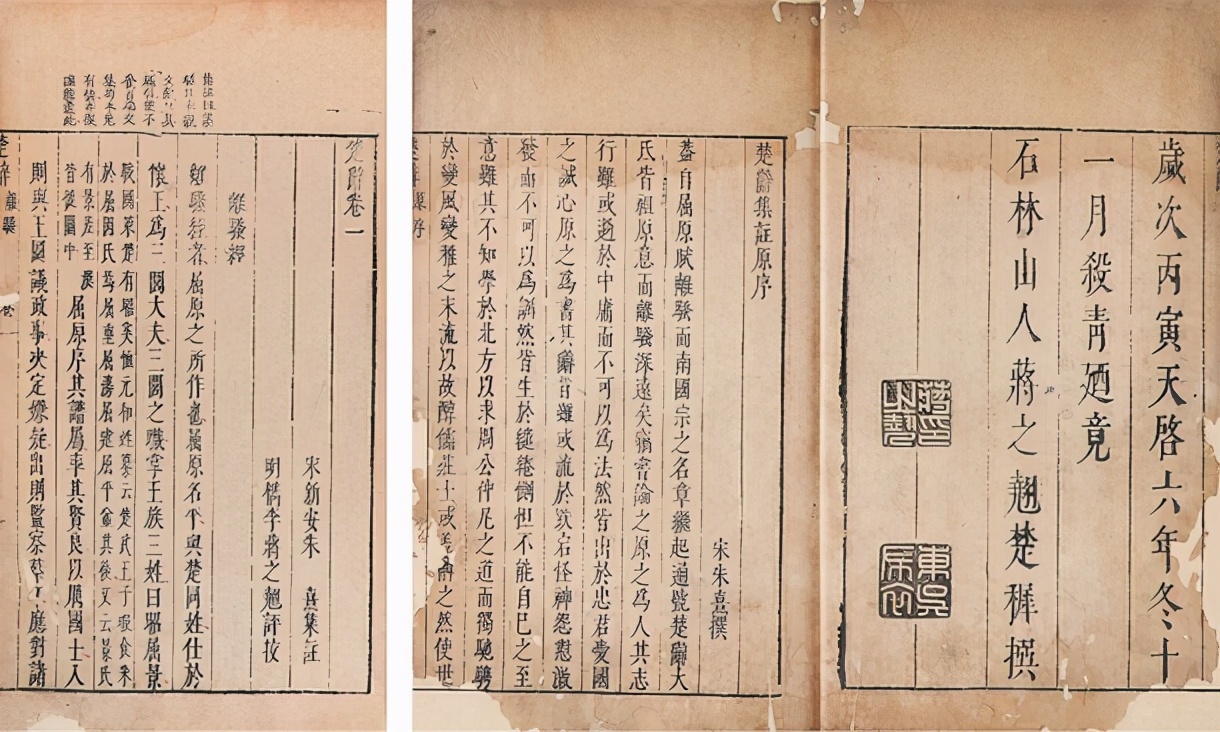 歲次丙寅天啓六年冬十
一月殺青廼竟
石林山人蔣之翹楚穉撰
楚辭集註原序
宋朱熹撰
蓋自屈原賦離騷而南國宗之名章繼起通號楚辭大
氐皆祖原意而離騷深遠矣竊嘗論之原之爲人其志
行雖或過於中庸而不可以爲法然皆出於忠君愛國
之誠心原之爲書其辭旨雖或流於跌宕怪神怨懟激
發而不可以爲訓然皆生於繾綣惻怛不能自已之至
意雖其不知學於北方以求周公仲尼之道而獨馳騁
於變風變雅之末流以故醇儒莊士或羞稱之然使世
楚辭卷一
宋新安朱 熹集註
明檇李蔣之翹評挍
離騷經
離騷經者屈原之所作也屈原名平與楚同姓仕於
懷王爲三閭大夫三閭之職掌王族三姓曰昭屈景
戰國策楚有昭奚恤元和姓纂云楚武王子瑕食采
於屈因氏焉屈重屈蕩屈建屈平並其後又云景氏
有景差至漢
皆徙關中
屈原序其譜屬率其賢良以厲國士入
則與王圖議政事決定嫌疑出則監察羣下應對諸